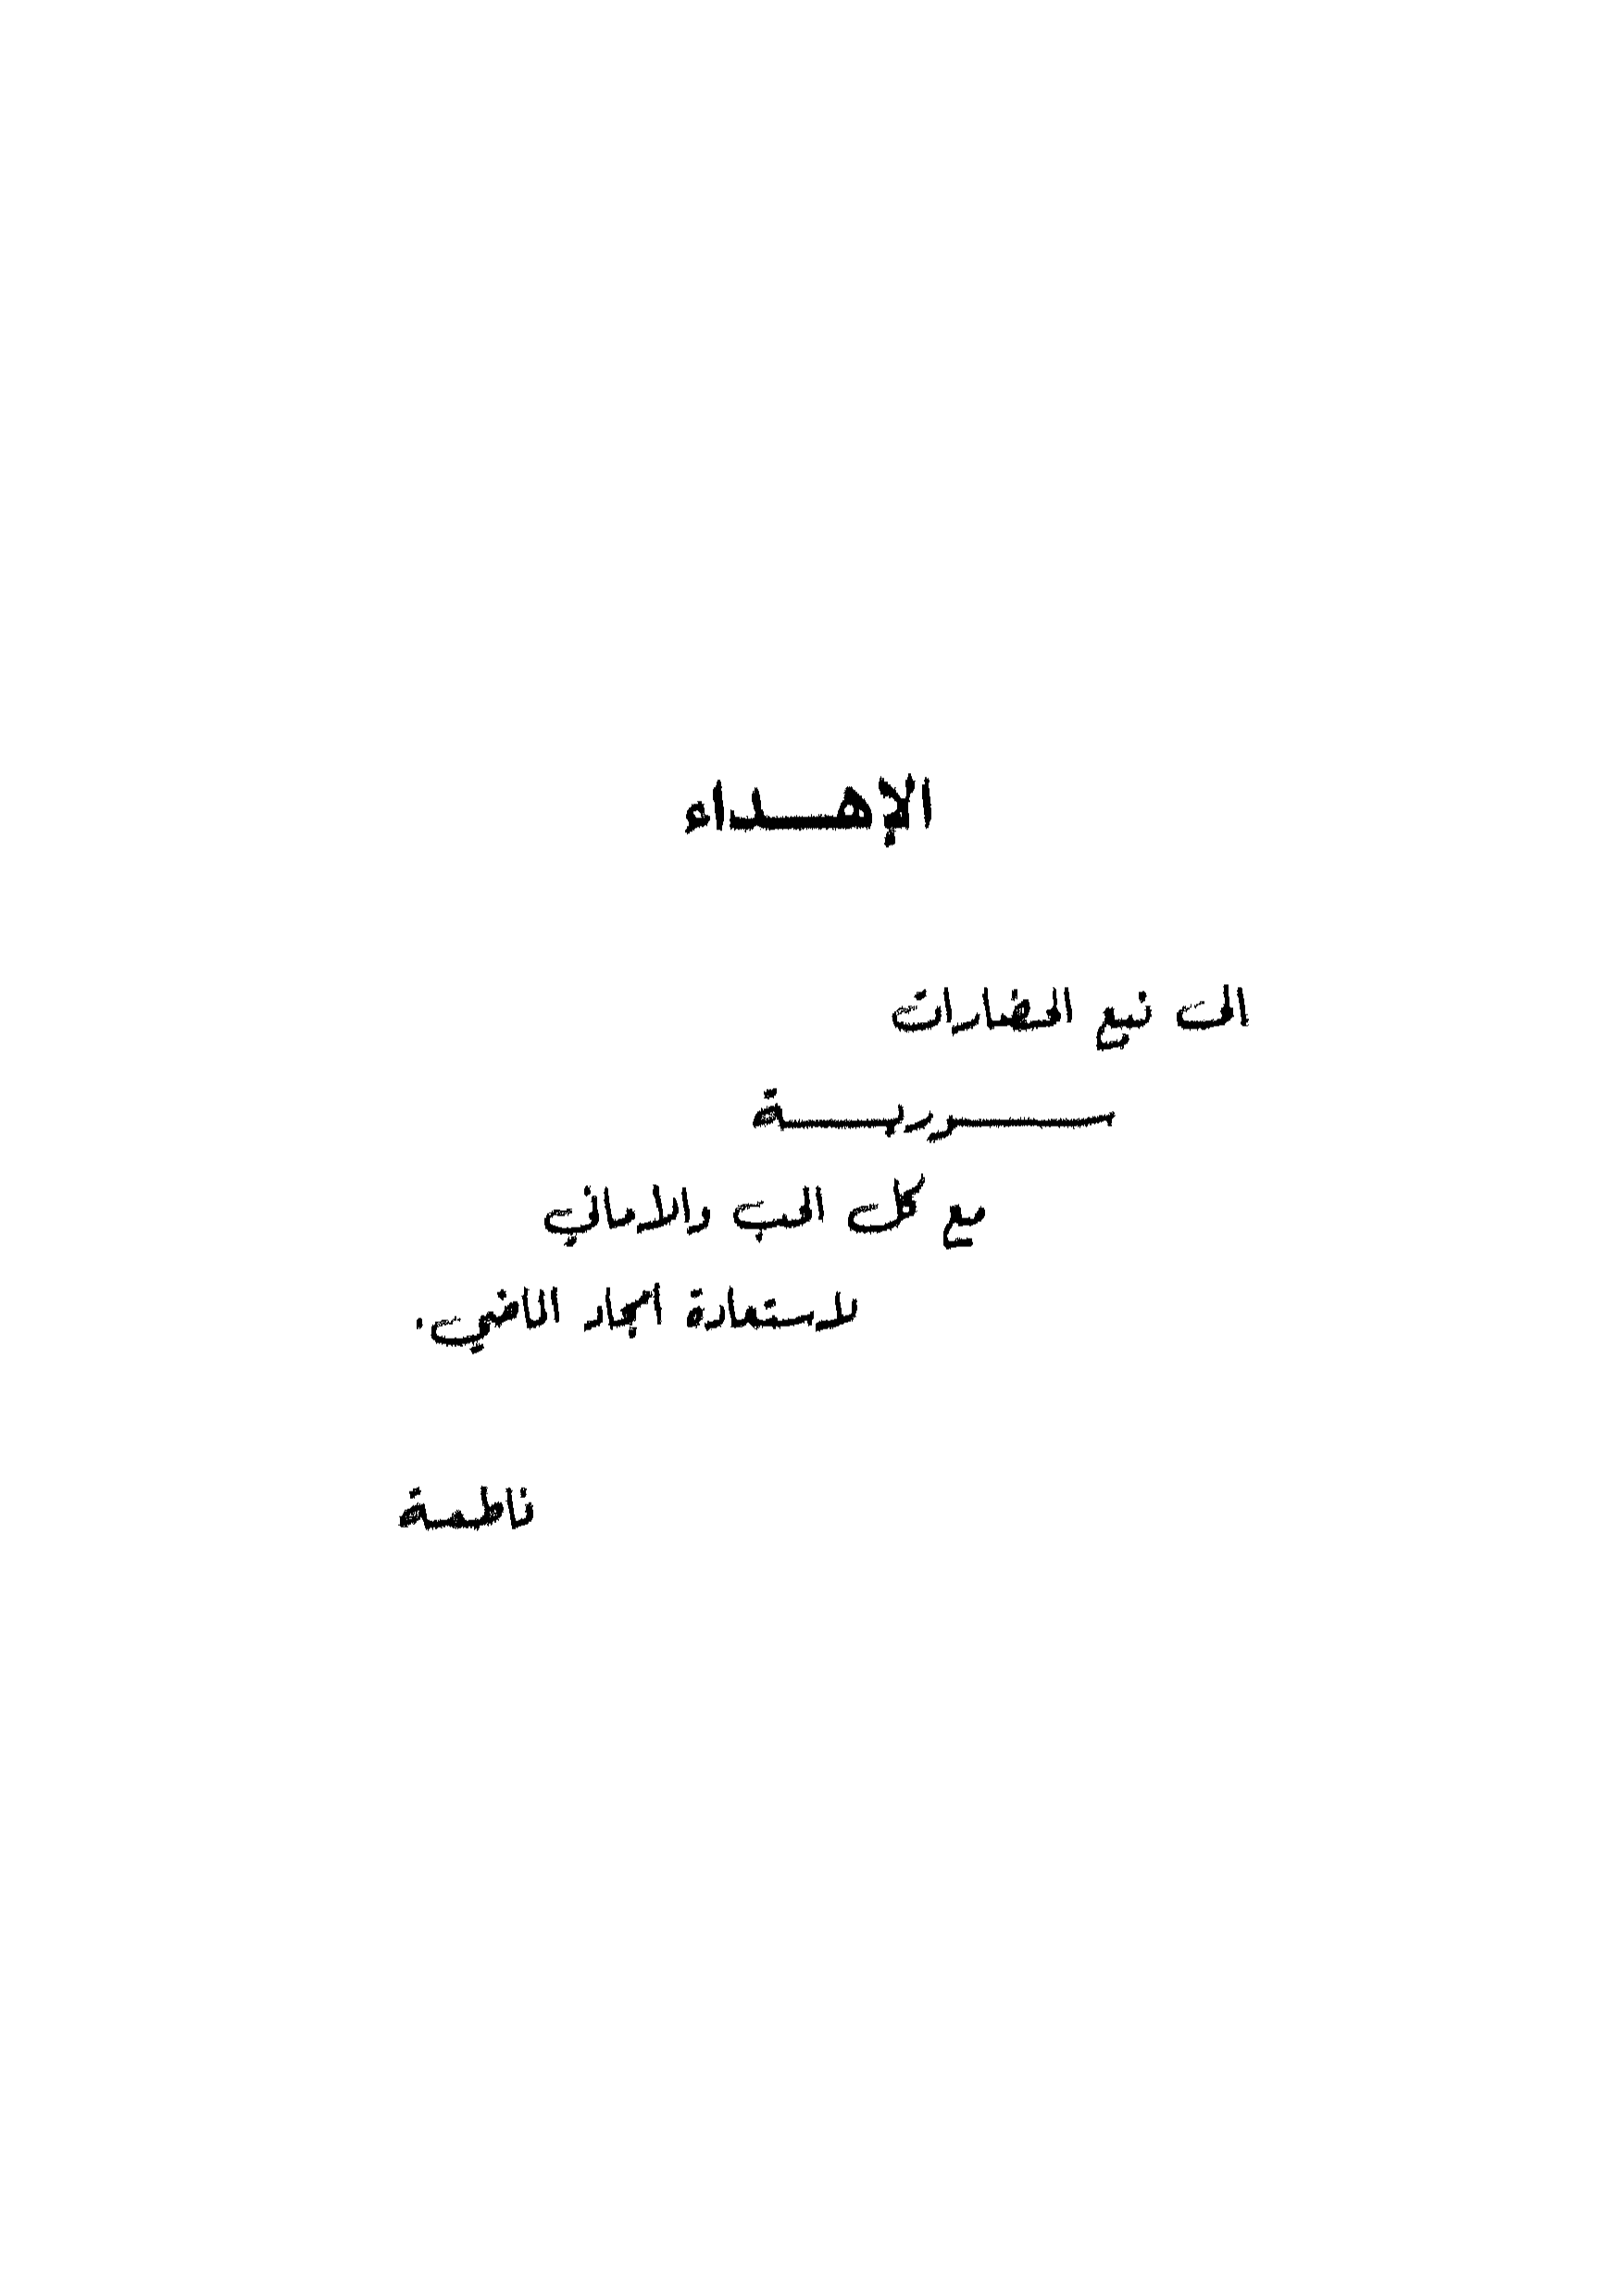 الإهـــداء
الى نبع الحضارات
ســـوريـــة
مع كل الحب والاماني
لاستعادة أمجاد الماضي.
فاطمة